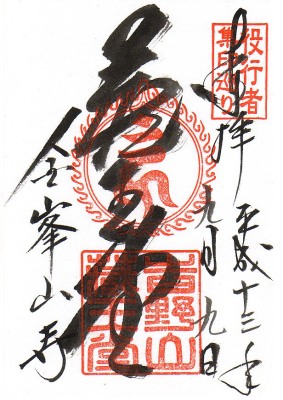 役行者
集印巡り
奉拝
平成十三年
九月九日
蔵王堂
吉野山
蔵王堂
金峯山寺